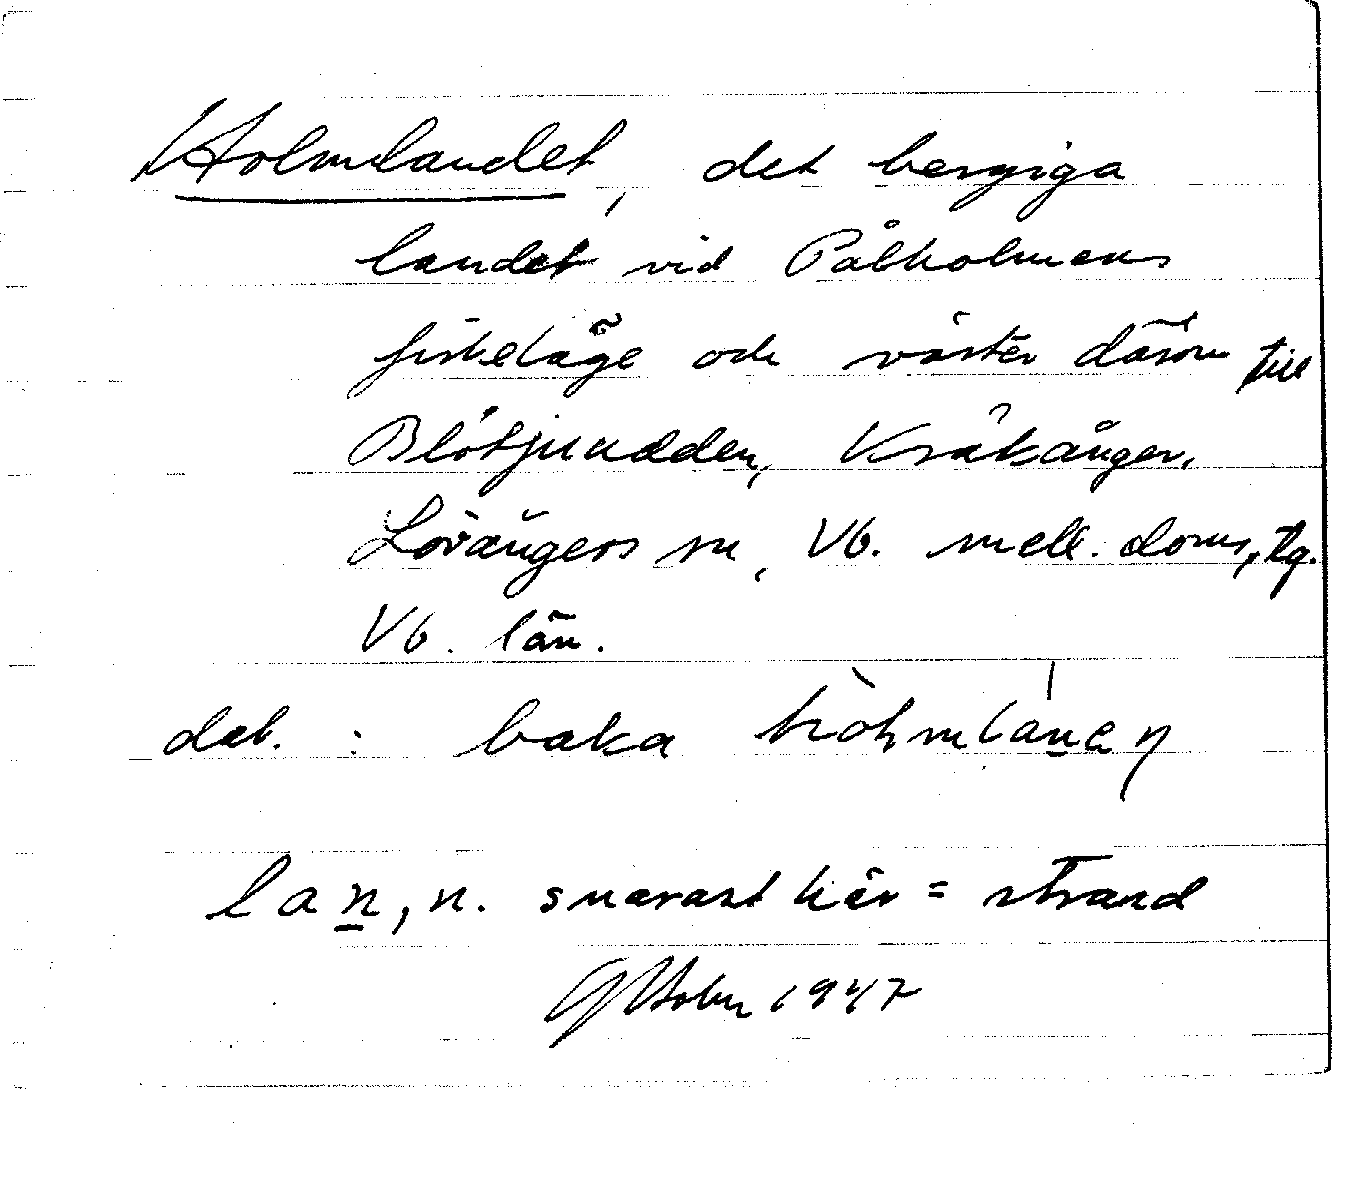 Holmlandet, det bergiga
landet vid Pålholmens
fiskeläge och väster därom till
Blötjuudden, Kråkånger,
Lövångers sn, Vb. mell. doms, tg.
Vb. län.
dat. : baka
lan, n. snarast här = strand
GHolm 1947